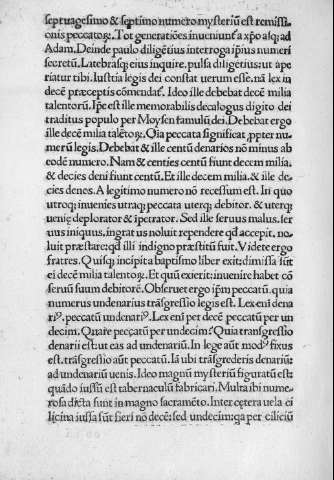 septuagesimo & septimo numero mysteriū est remissi-
onis peccatoꝝ. Tot generatiōes inueniunť a xp̄o usq; ad
Adam. Deinde paulo diligētius interroga ip̄ius numeri
secretū. Latebrasq; eius inquire. pulsa diligētius: ut ape
riatur tibi. Iustitia legis dei constat uerum esse. nā lex in
decē præceptis cōmendať. Ideo ille debebat decē milia
talentorū. Ip̄e est ille memorabilis decalogus digito dei
traditus populo per Moysen famulū dei. Debebat ergo
ille decē milia talētoꝝ. Q̄ia peccata significat ꝓpter nu-
merū legis. Debebat & ille centū denarios nō minus ab
eodē numero. Nam & centies centū fiunt decem milia.
& decies deni fiunt centū. Et ille decem milia. & ille de-
cies denos. A legitimo numero nō recessum est. In quo
utroq; inuenies utraq; peccata uterq; debitor. & uterq;
ueniȩ deplorator & īpetrator. Sed ille seruus malus. ser
uus iniquus, ingratus noluit rependere qd̄ accepit. no
luit præstare: qd̄ illi indigno præstitū fuit. Videte ergo
fratres. Quisq; incipit a baptismo liber exit: dimissa sūt
ei decē milia talentoꝝ. Et quū exierit: inuenire habet cō
seruū suum debitorē. Obseruet ergo ip̄m peccatū. quia
numerus undenarius trāsgressio legis est. Lex eni dena
riꝰ. peccatū undenariꝰ. Lex eni per decē peccatū per un
decim. Quare peccatum per undecim? Quia transgressio
denarii est: ut eas ad undenariū. In lege aūt modꝰ fixus
est. trāsgressio aūt peccatū. Iā ubi trāsgrederis denariū:
ad undenariū uenis. Ideo magnū mysteriū figuratū est:
quādo iussū est tabernaculū fabricari. Multa ibi nume-
rosa dicta sunt in magno sacramēto. Inter cȩtera uela ci
licina iussa sūt fieri nō decē: sed undecim: qa per ciliciū